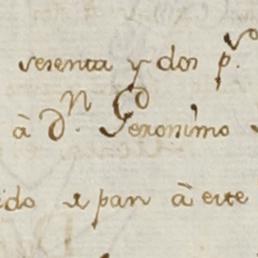 sesenta y dos p.^s
à D.^n Geronimo
ido e pan à este